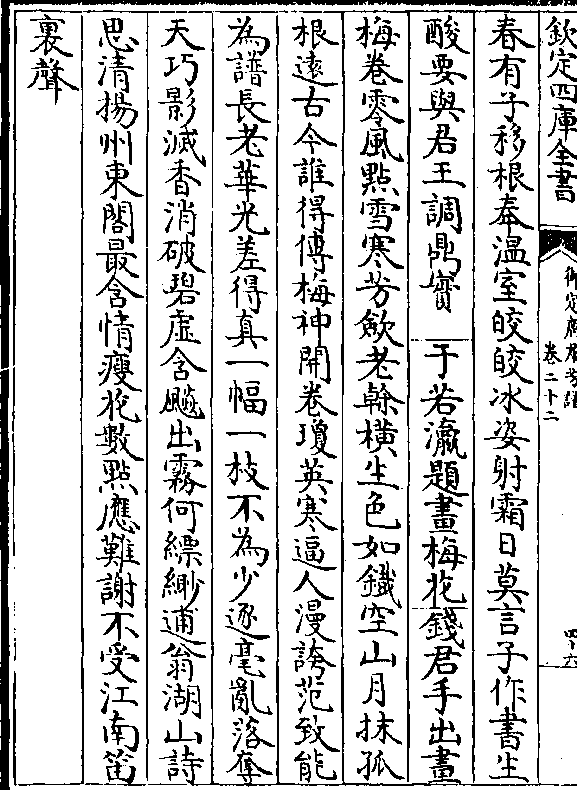 欽定四庫全書
御定廣羣芳譜
卷二十二
四十六
春有子移根奉温室皎皎冰姿射霜日莫言子作書生
酸要與君王調鼎實　于若瀛題畫梅花錢君手出畫
梅卷零風點雪寒芳歛老榦橫生色如鐵空山月抹孤
根逺古今誰得傳梅神開卷瓊英寒逼人漫誇范致能
為譜長老華光差得真一幅一枝不為少逐毫亂落奪
天巧影滅香消破碧虛含飈出霧何縹緲逋翁湖山詩
思清揚州東閣最含情瘦花數點應難謝不受江南笛
裏聲